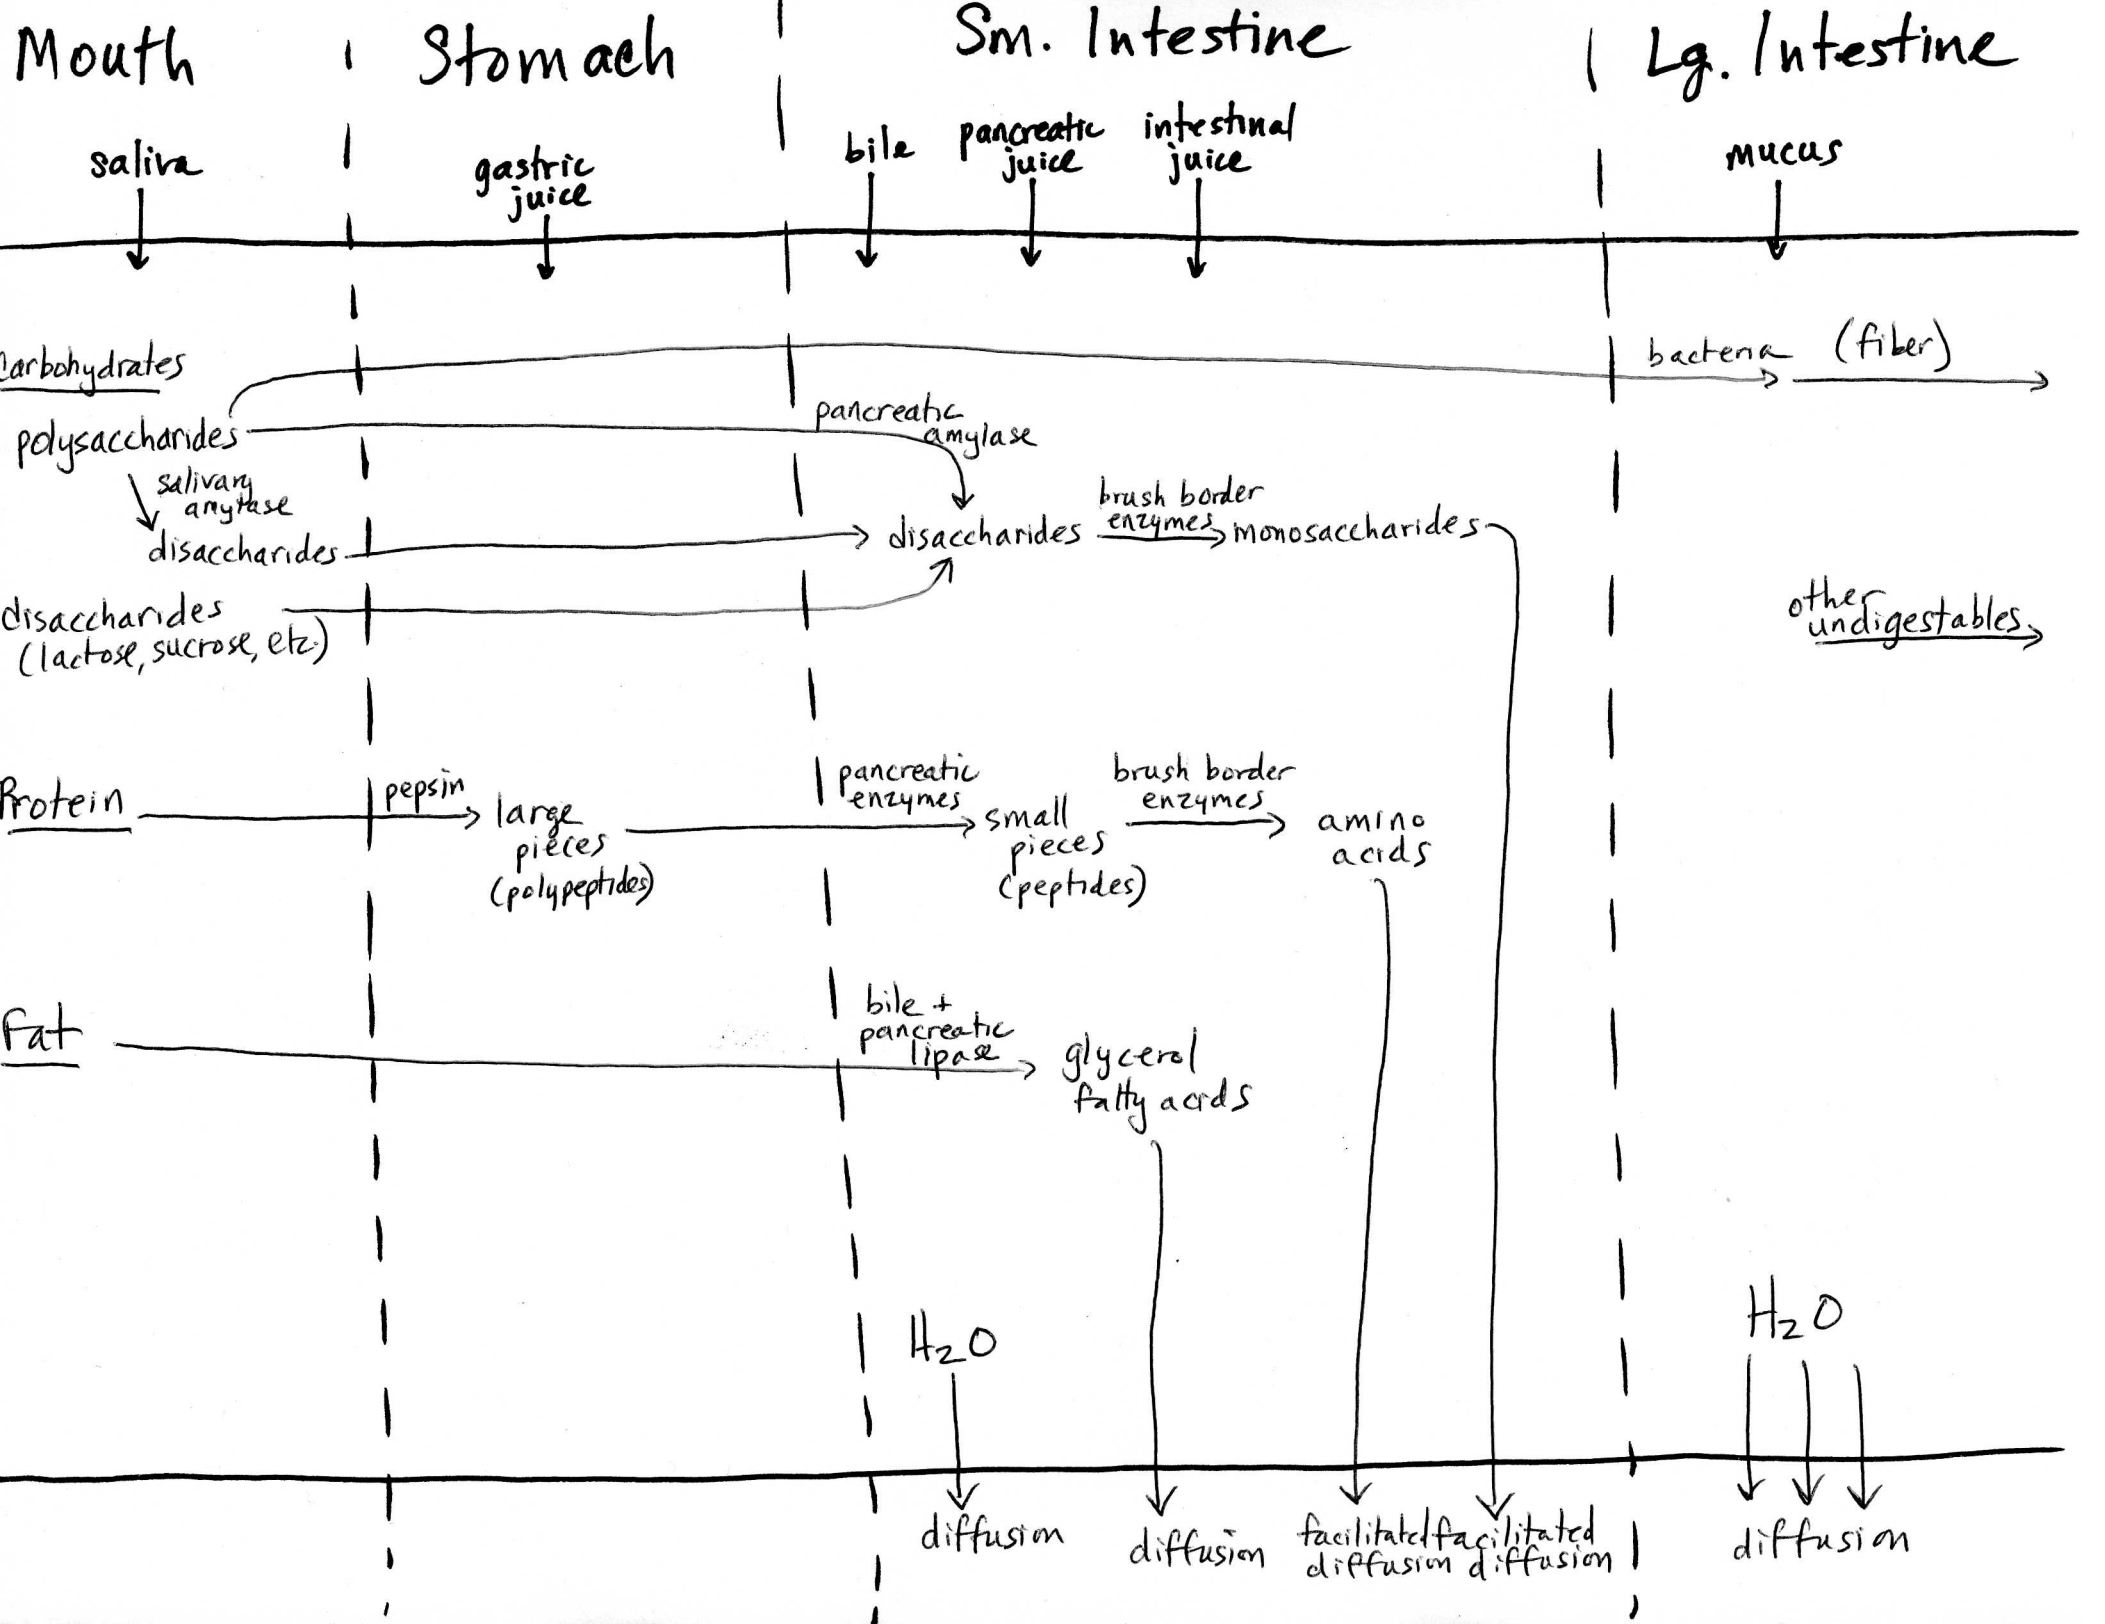 Mouth
Stomach
Sm. Intestine
Lg. Intestine
saliva
gastric
juice
bile
pancreatic
juice
intestinal
juice
mucus
Carbohydrates
bacteria
(fiber)
polysaccharides
pancreatic
amylase
salivary
amylase
disaccharides
disaccharides
brush border
enzymes
monosaccharides
disaccharides
(lactose, sucrose, etc.)
other
undigestables
Protein
pepsin
large
pieces
(polypeptides)
pancreatic
enzymes
small
pieces
(peptides)
brush border
enzymes
amino
acids
Fat
bile +
pancreatic
lipase
glycerol
fatty acids
H2O
H2O
diffusion
diffusion
facilitated
diffusion
facilitated
diffusion
diffusion